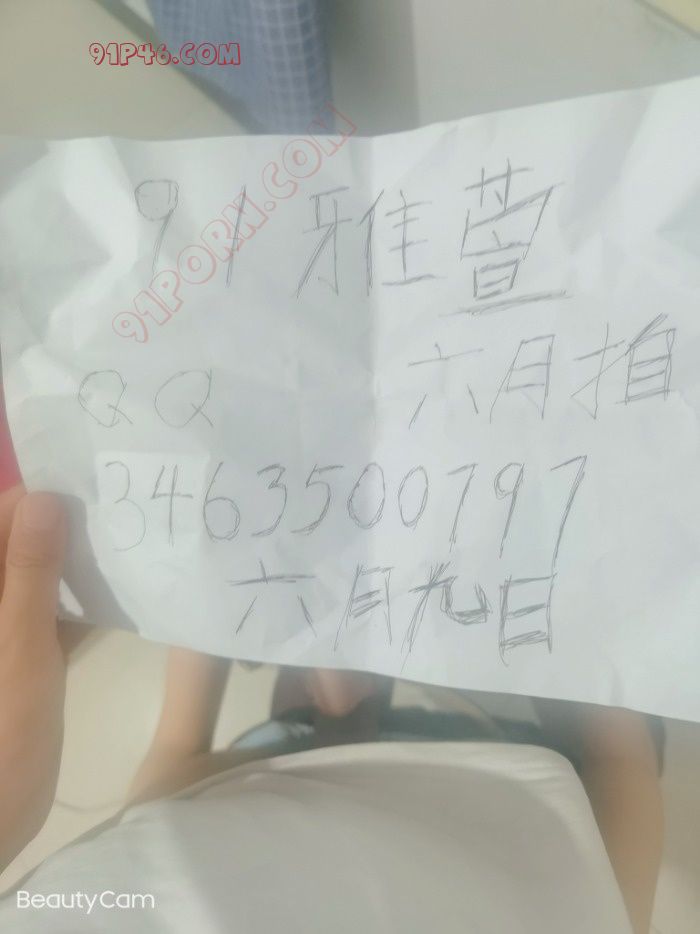 91P46.COM
91PORN.COM
91 雅萱
六月拍
QQ
3463500797
六月九日
BeautyCam